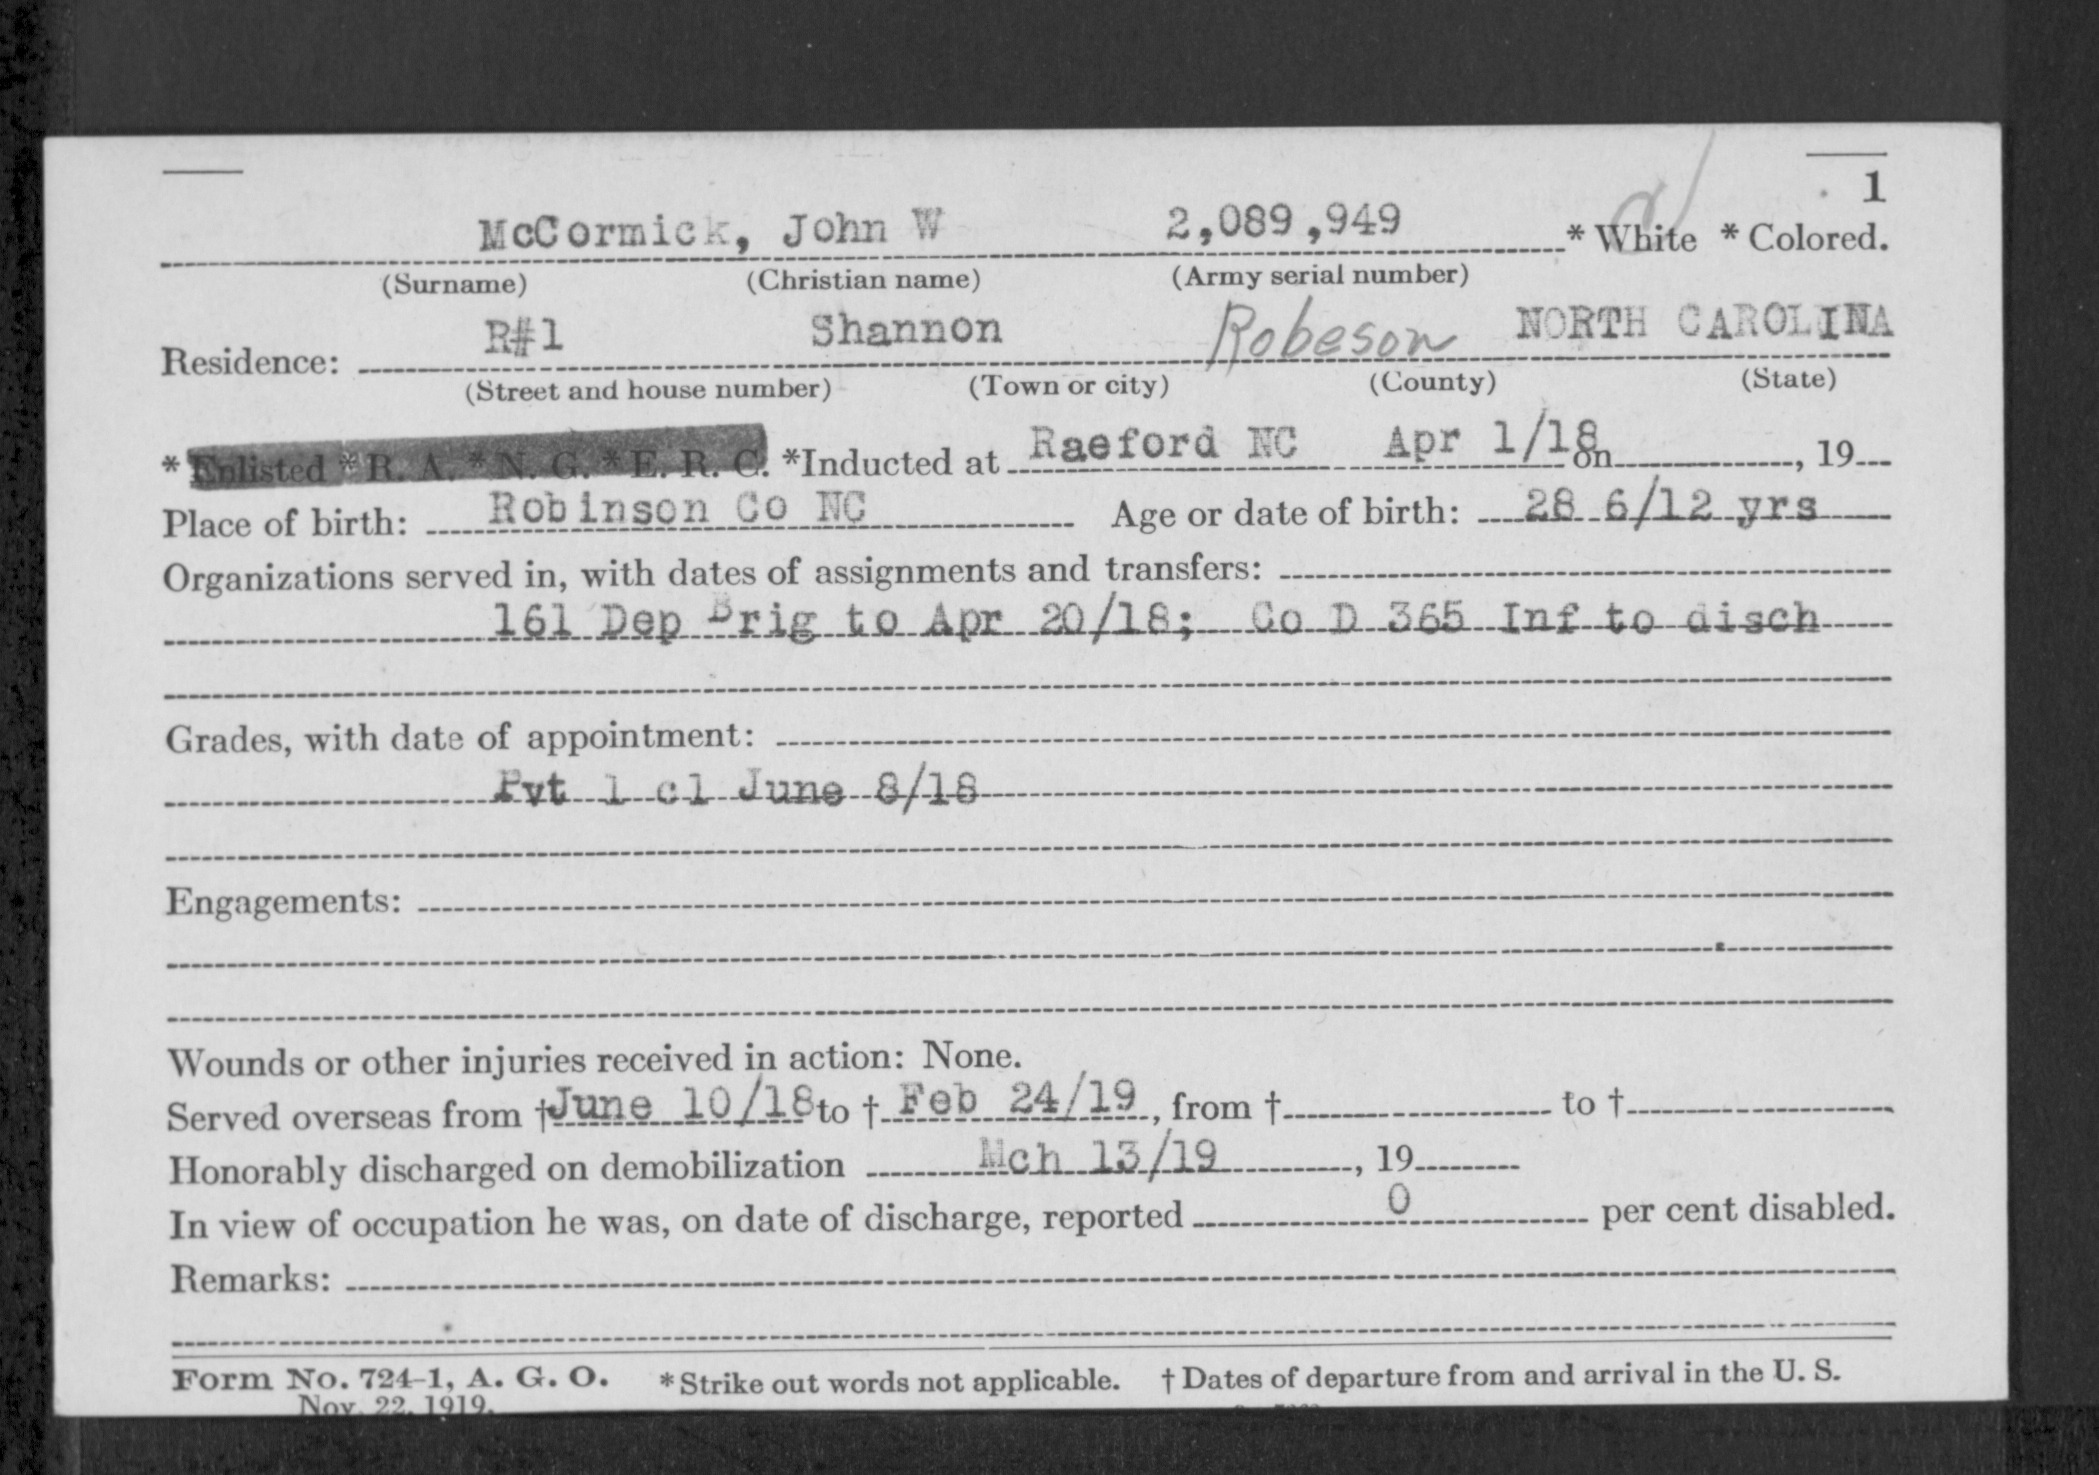 1
McCormick, John W 2,089,949 * White * Colored.
(Surname) (Christian name) (Army serial number)
R#1 Shannon Robeson NORTH CAROLINA
Residence:
(Street and house number) (Town or city) (County) (State)
* Enlisted * R. A. * N. G. * E. R. C. *Inducted at Raeford NC Apr 1/18 on , 19
Place of birth: Robinson Co NC Age or date of birth: 28 6/12 yrs
Organizations served in, with dates of assignments and transfers:
161 Dep Brig to Apr 20/18; Co D 365 Inf to disch
Grades, with date of appointment:
Pvt 1 cl June 8/18
Engagements:
Wounds or other injuries received in action: None.
Served overseas from † June 10/18 to † Feb 24/19, from † to †
Honorably discharged on demobilization Mch 13/19 , 19
In view of occupation he was, on date of discharge, reported 0 per cent disabled.
Remarks:
Form No. 724-1, A. G. O. * Strike out words not applicable. † Dates of departure from and arrival in the U. S.
Nov. 22, 1919.